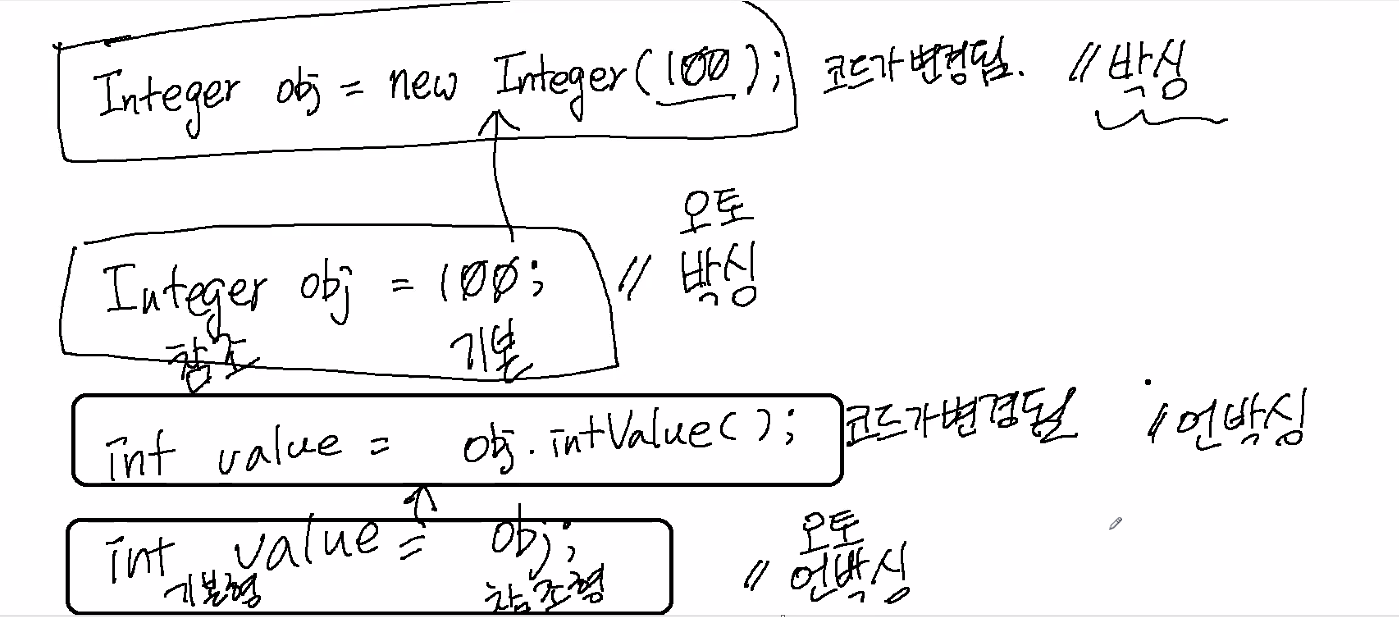 Integer obj = new Integer(100); 코드가 변경됨. // 박싱
오토
Integer obj = 100; // 박싱
참조 기본
int value = obj.intValue(); 코드가 변경됨 // 언박싱
오토
int value = obj; // 언박싱
기본형 참조형